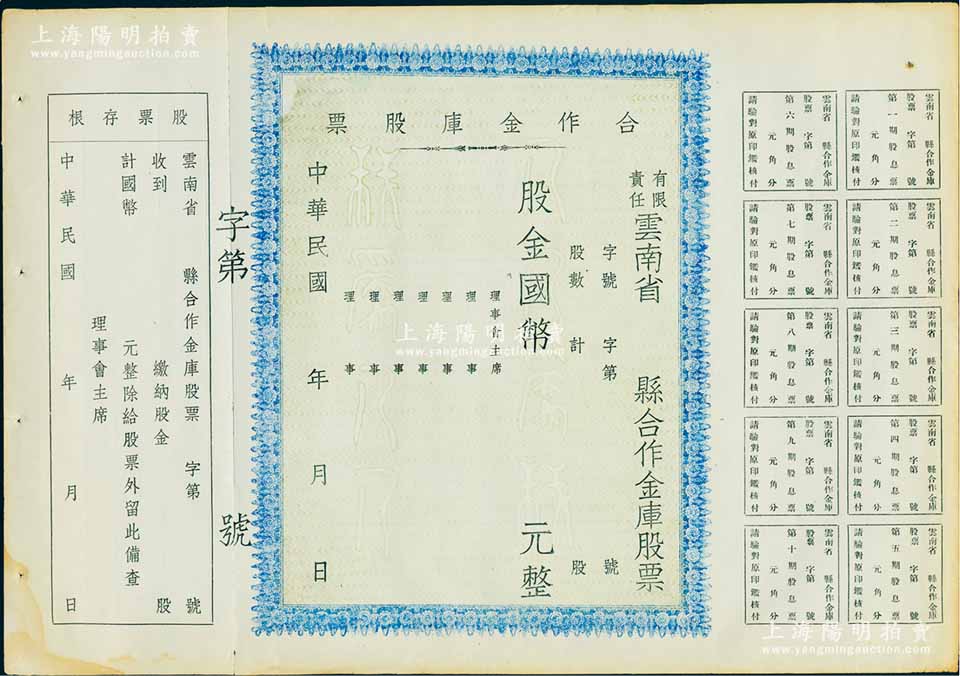 上海陽明拍賣
www.yangmingauction.com
雲南省 縣合作金庫
股票 字第 號
第一期股息票
元角分
請驗對原印鑑核付
雲南省 縣合作金庫
股票 字第 號
第二期股息票
元角分
請驗對原印鑑核付
雲南省 縣合作金庫
股票 字第 號
第三期股息票
元角分
請驗對原印鑑核付
雲南省 縣合作金庫
股票 字第 號
第四期股息票
元角分
請驗對原印鑑核付
雲南省 縣合作金庫
股票 字第 號
第五期股息票
元角分
請驗對原印鑑核付
雲南省 縣合作金庫
股票 字第 號
第六期股息票
元角分
請驗對原印鑑核付
雲南省 縣合作金庫
股票 字第 號
第七期股息票
元角分
請驗對原印鑑核付
雲南省 縣合作金庫
股票 字第 號
第八期股息票
元角分
請驗對原印鑑核付
雲南省 縣合作金庫
股票 字第 號
第九期股息票
元角分
請驗對原印鑑核付
雲南省 縣合作金庫
股票 字第 號
第十期股息票
元角分
請驗對原印鑑核付
合作金庫股票
有限責任雲南省 縣合作金庫股票
字號 字第 號
股數 計 股
股金國幣 元整
理事會主席
理事
理事
理事
理事
理事
理事
中華民國 年 月 日
字第 號
股票存根
雲南省 縣合作金庫股票 字第 號
收到 繳納股金 股
計國幣 元整除給股票外留此備查
理事會主席
中華民國 年 月 日
上海陽明拍賣
www.yangmingauction.com
上海陽明拍賣
www.yangmingauction.com